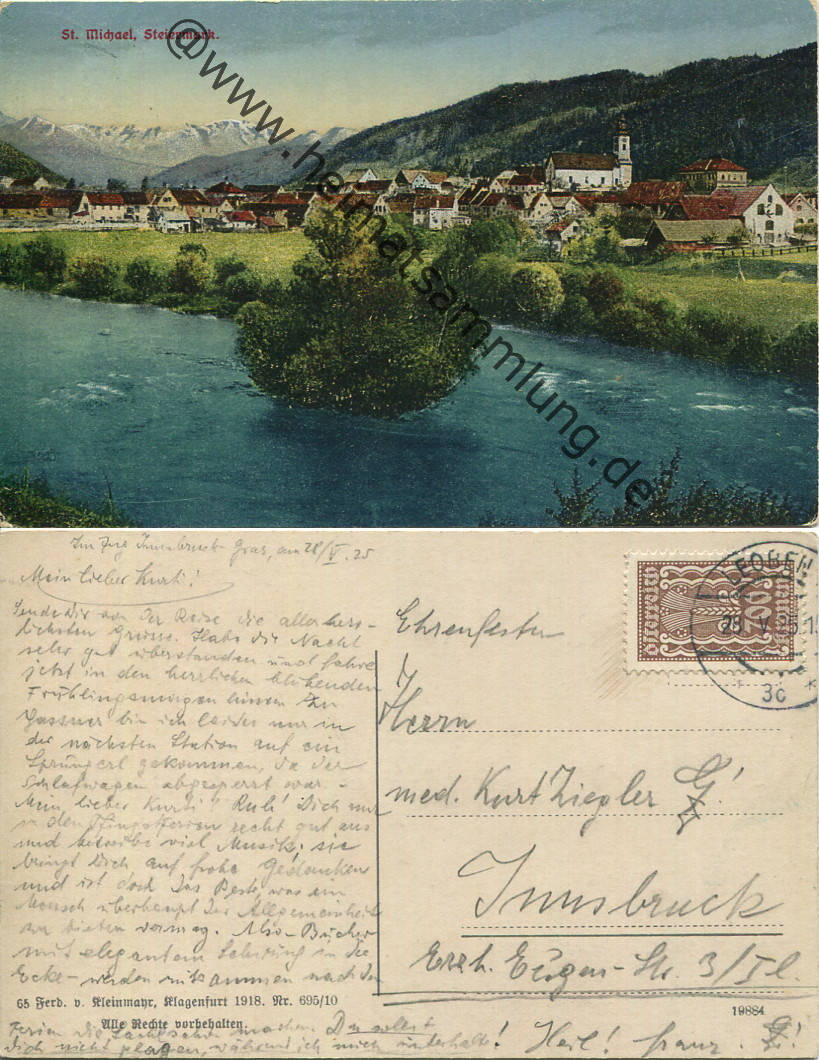 St. Michael, Steiermark.
@www.heimatsammlung.de
Im Zug Innsbruck-Graz, am 28/V. 25
Mein lieber Kurti!
Sende Dir von der Reise die allerherz-
lichsten Grüsse. Habe die Nacht
sehr gut überstanden und fahre
jetzt in den herrlichen blühenden
Frühlingsmorgen hinein. Zu
Gassner bin ich leider nur in
der nächsten Station auf ein
Sprüngerl gekommen, da der
Schlafwagen abgesperrt war. -
Mein lieber Kurti! Ruh' Dich nur
in den Pfingstferien recht gut aus
und betreibe viel Musik; sie
bringt Dich auf frohe Gedanken
und ist doch das Beste, was ein
Mensch überhaupt der Allgemeinheit
zu bieten vermag. Also - Bücher
mit elegantem Schwung in die
Ecke - werden zusammen nach den
65 Ferd. v. Kleinmayr, Klagenfurt 1918. Nr. 695/10
Alle Rechte vorbehalten.
Ferien die machen. Du sollst
Dich nicht plagen, während ich mich unterhalte! Heil! Franz
Österreich
700
LEOBEN
28 V 25 15
3c
Ehrenfester
Herrn
med. Kurt Ziegler
Innsbruck
Erzh. Eugen-Str. 3/I l.
19884